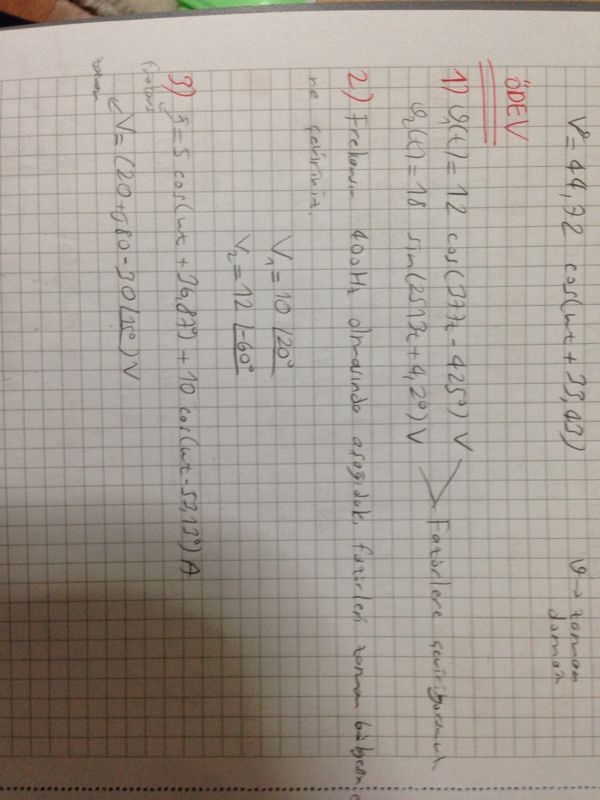 V = 44,72 cos(wt + 33,43)
v → zaman
domain
ÖDEV
1) v₁(t) = 12 cos(377t - 425°) V
v₂(t) = 18 sin(2513t + 4,2°) V > Fazörlere çeviriyorsunuz
2) Frekansın 400Hz olmasında aşağıdaki fazörleri zaman bölgesine
ne çeviriniz.
V₁ = 10 /20°
V₂ = 12 /-60°
3) = 5 cos(wt + 36,87°) + 10 cos(wt - 53,13°) A
V = (20 + j80 - 30 /25°) V
zaman